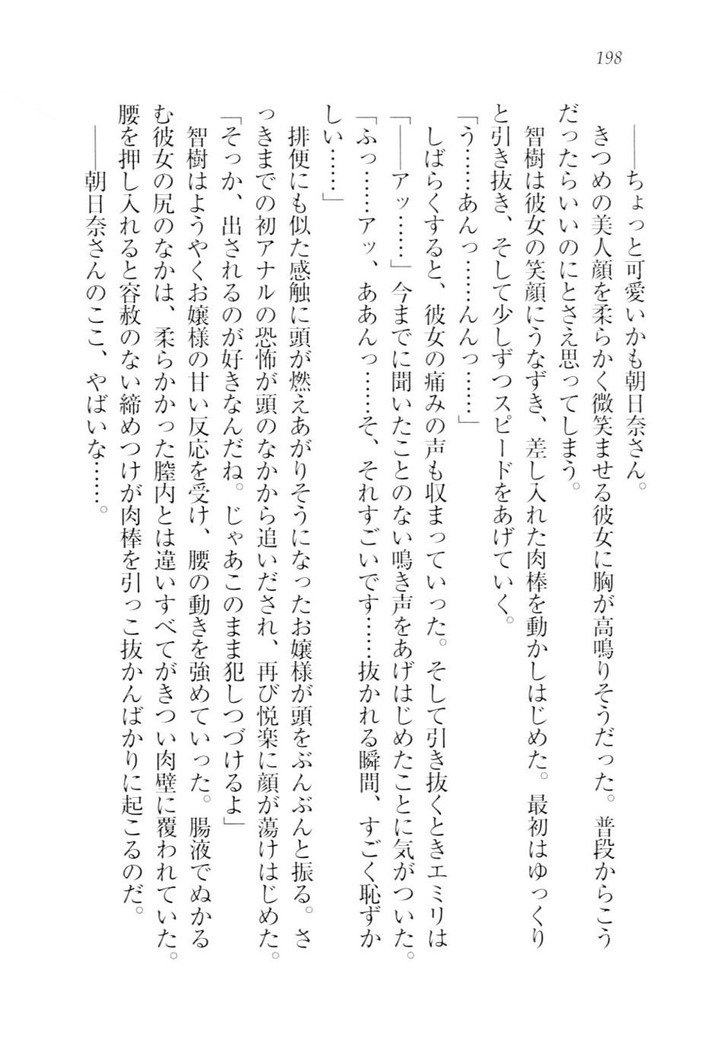 198
――ちょっと可愛いかも朝日奈さん。
きつめの美人顔を柔らかく微笑ませる彼女に胸が高鳴りそうだった。普段からこう
だったらいいのにとさえ思ってしまう。
智樹は彼女の笑顔にうなずき、差し入れた肉棒を動かしはじめた。最初はゆっくり
と引き抜き、そして少しずつスピードをあげていく。
「う……あんっ……んんっ……」
しばらくすると、彼女の痛みの声も収まっていった。そして引き抜くときエミリは
「――アッ……」今までに聞いたことのない鳴き声をあげはじめたことに気がついた。
「ふっ……アッ、ああんっ……そ、それすごいです……抜かれる瞬間、すごく恥ずか
しい……」
排便にも似た感触に頭が燃えあがりそうになったお嬢様が頭をぶんぶんと振る。さ
っきまでの初アナルの恐怖が頭のなかから追いだされ、再び悦楽に顔が蕩けはじめた。
「そっか、出されるのが好きなんだね。じゃあこのまま犯しつづけるよ」
智樹はようやくお嬢様の甘い反応を受け、腰の動きを強めていった。腸液でぬかる
む彼女の尻のなかは、柔らかかった膣内とは違いすべてがきつい肉壁に覆われていた。
腰を押し入れると容赦のない締めつけが肉棒を引っこ抜かんばかりに起こるのだ。
――朝日奈さんのここ、やばいな……。